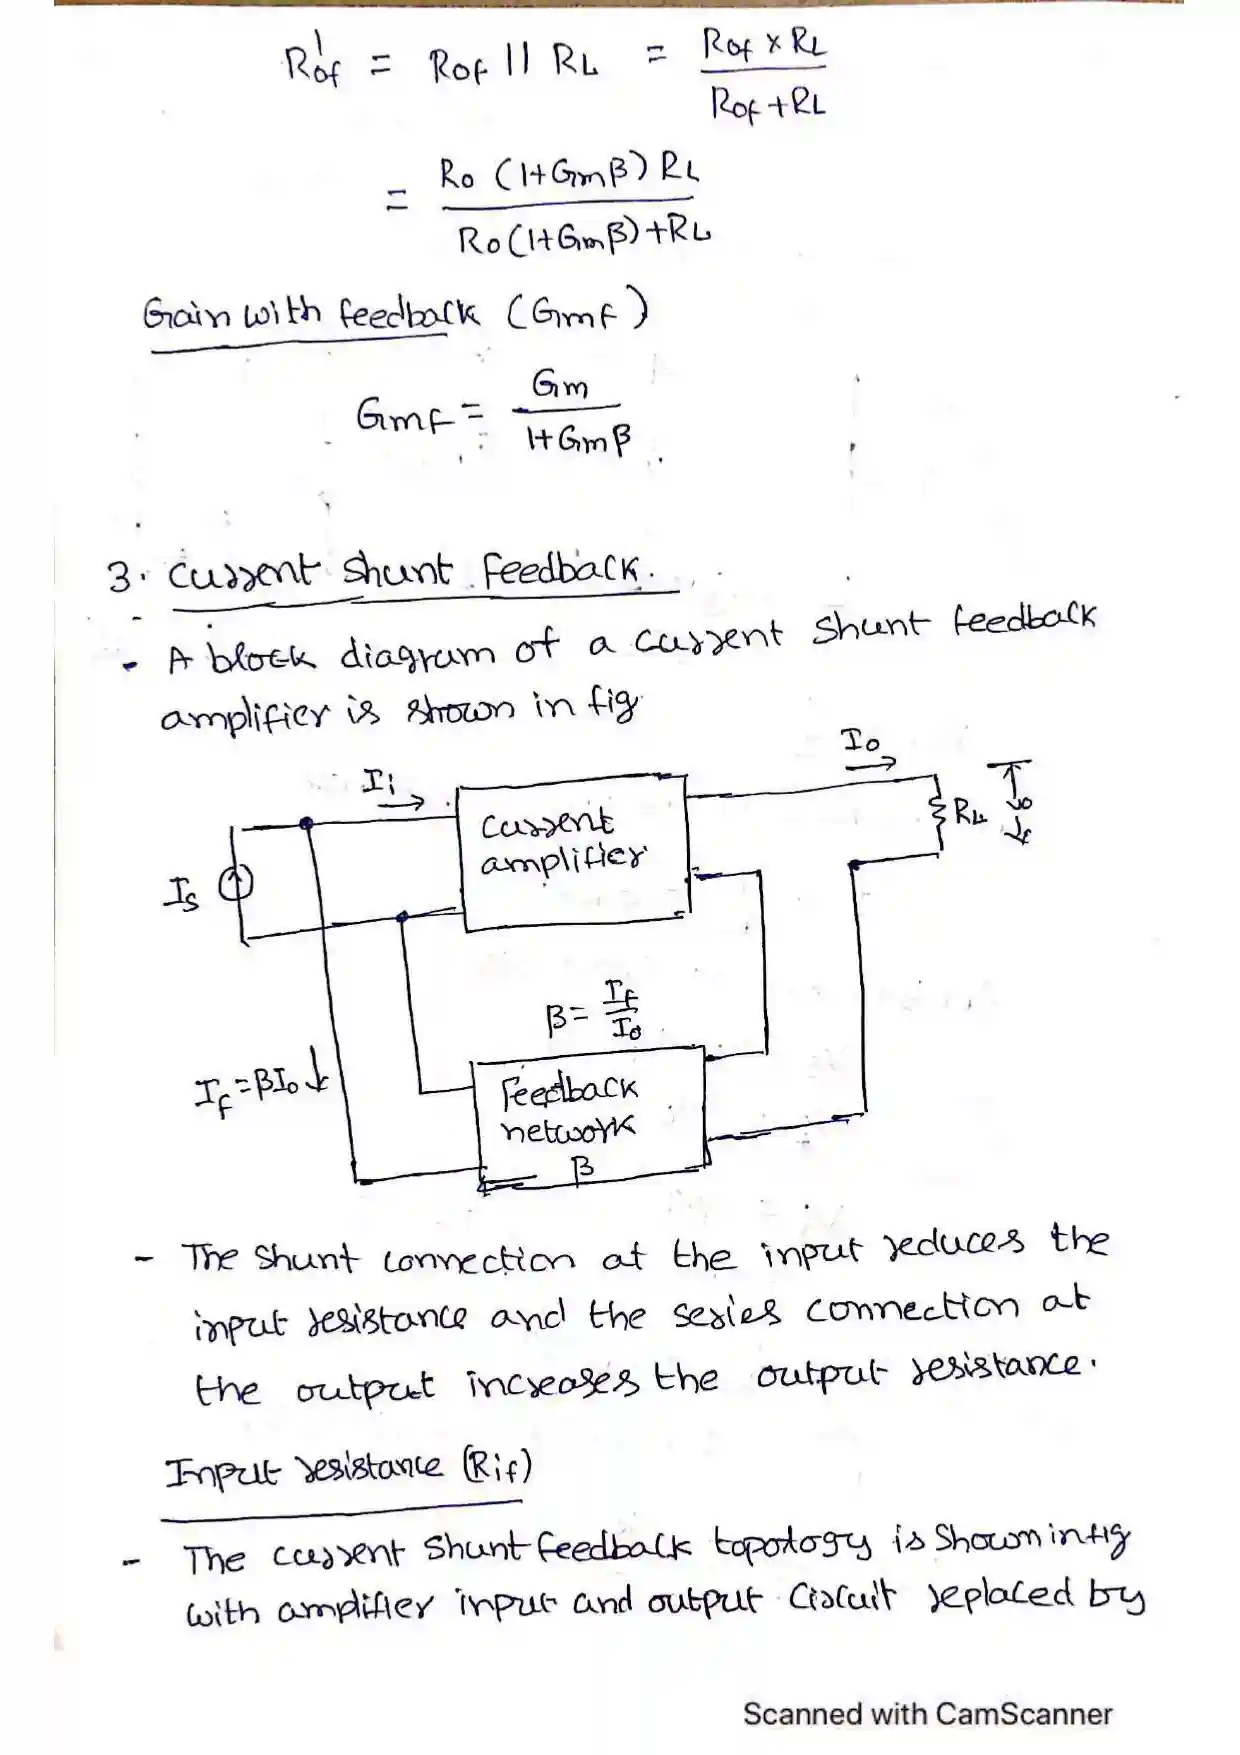 R'of = Rof || RL = Rof × RL / Rof + RL
= Ro (1+Gmβ) RL / Ro (1+Gmβ)+RL
Gain with feedback (Gmf)
Gmf = Gm / 1+Gmβ
3. Current shunt feedback.
- A block diagram of a current shunt feedback
amplifier is shown in fig
Io
Ii
Current
amplifier
RL
Is
β = If / Io
If = βIo
Feedback
network
β
- The shunt connection at the input reduces the
input resistance and the series connection at
the output increases the output resistance.
Input resistance (Rif)
- The current shunt feedback topology is shown in fig
with amplifier input and output circuit replaced by
Scanned with CamScanner